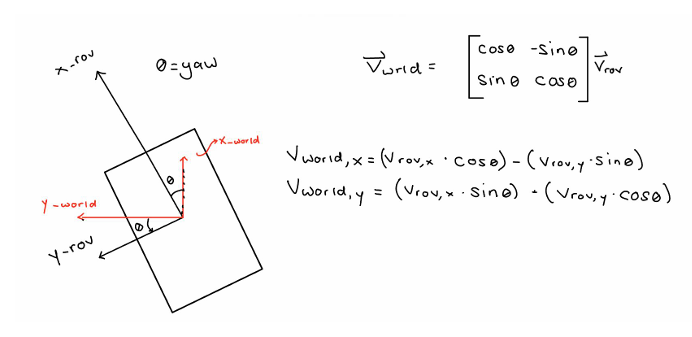 x-rov
θ=yaw
x-world
θ
y-world
θ
y-rov
V⃗wrld = [cosθ -sinθ
sinθ cosθ] V⃗rov
Vworld,x = (Vrov,x · cosθ) - (Vrov,y · sinθ)
Vworld,y = (Vrov,x · sinθ) - (Vrov,y · cosθ)